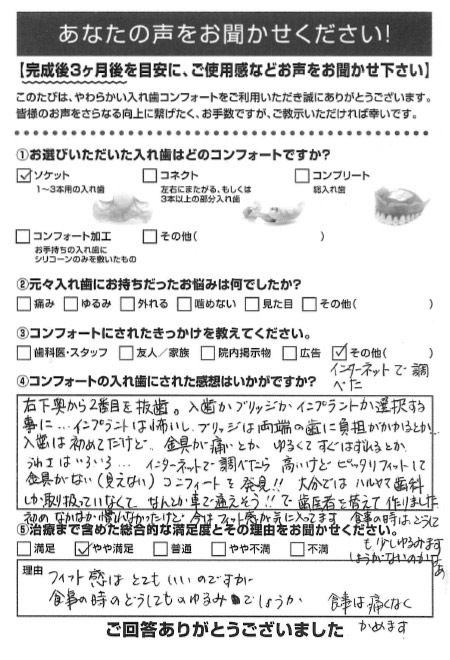 あなたの声をお聞かせください!
【完成後3ヶ月後を目安に、ご使用感などお声をお聞かせ下さい】
このたびは、やわらかい入れ歯コンフォートをご利用いただき誠にありがとうございます。
皆様のお声をさらなる向上に繋げたく、お手数ですが、ご教示いただければ幸いです。
①お選びいただいた入れ歯はどのコンフォートですか?
☑ソケット □コネクト □コンプリート
1〜3本用の入れ歯 左右にまたがる、もしくは 総入れ歯
3本以上の部分入れ歯
□コンフォート加工 □その他( )
お手持ちの入れ歯に
シリコーンのみを敷いたもの
②元々入れ歯にお持ちだったお悩みは何でしたか?
□痛み □ゆるみ □外れる □噛めない □見た目 □その他( )
③コンフォートにされたきっかけを教えてください。
□歯科医・スタッフ □友人/家族 □院内掲示物 □広告 ☑その他( )
インターネットで調
べた
④コンフォートの入れ歯にされた感想はいかがですか?
右下奥から2番目を抜歯。入歯かブリッジかインプラントか選択する
事に…インプラントは怖いし、ブリッジは両端の歯に負担がかかるとか、
入歯は初めてだけど、金具が痛いとか ゆるくてすぐはずれるとか、
うわさはいろいろ…インターネットで調べたら高いけどピッタリフィットして
金具がない(見えない)コンフォートを発見!! 大分では ハルヤマ歯科
しか取扱っていなくて、なんとか車で通えそう!!で歯医者を替えて作りました
初め なかなか慣れなかったけど 今はフィット感が気に入ってます 食事の時はどうして
も少しゆるみます
しょうがないのかなぁ
⑤治療まで含めた総合的な満足度とその理由をお聞かせください。
□満足 ☑やや満足 □普通 □やや不満 □不満
理由 フィット感はとてもいいのですが
食事の時のどうしてものゆるみでしょうか 食事は痛くなく
かめます
ご回答ありがとうございました